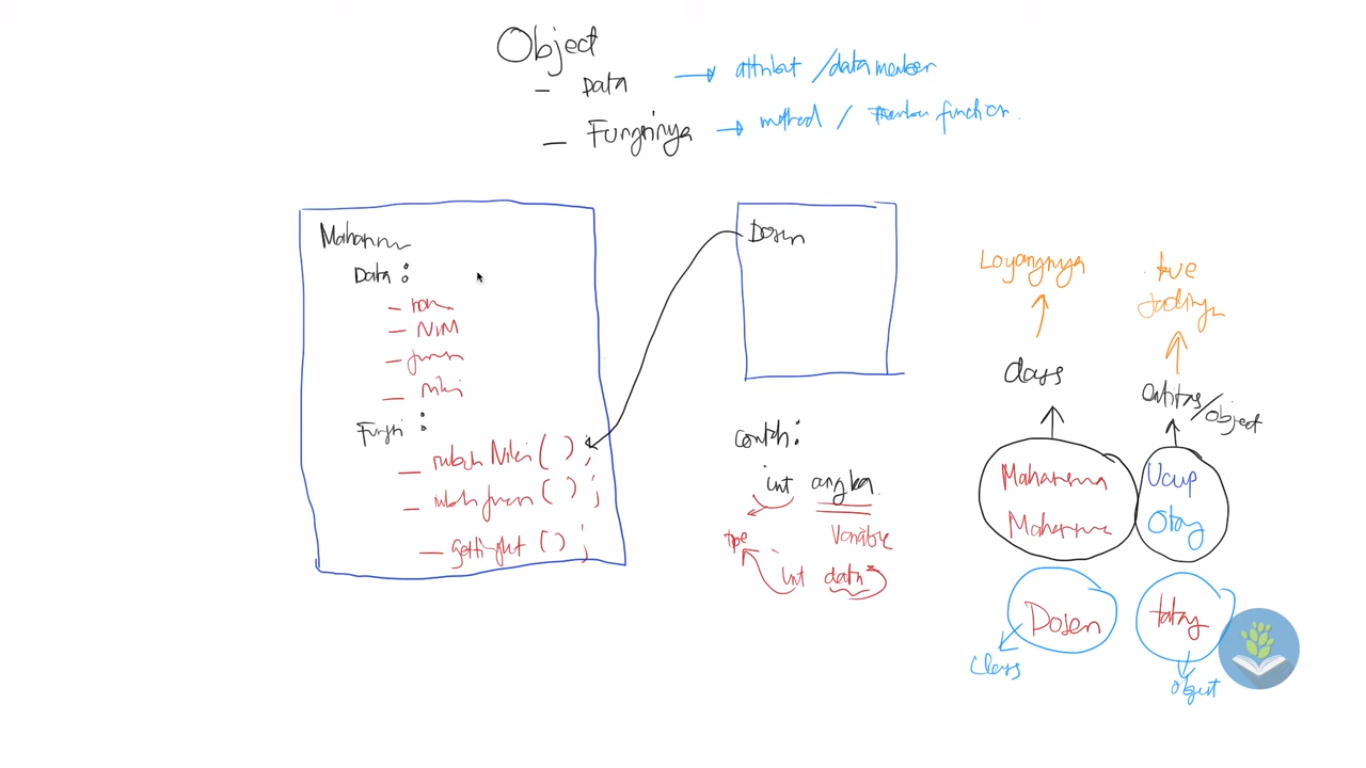 Object
- Data → attribut / data member
- Fungsinya → method / member function.
Mahasiswa
Data :
- nama
- NIM
- jurusan
- nilai
Fungsi :
- rubah Nilai ( ) ;
- rubah jurusan ( ) ;
- ( ) ;
Dosen
contoh :
int angka
type
variable
int data
Loyangnya
kue
jadinya
class
entitas/object
Mahasiswa Ucup
Mahasiswa Otoy
Dosen
class
object